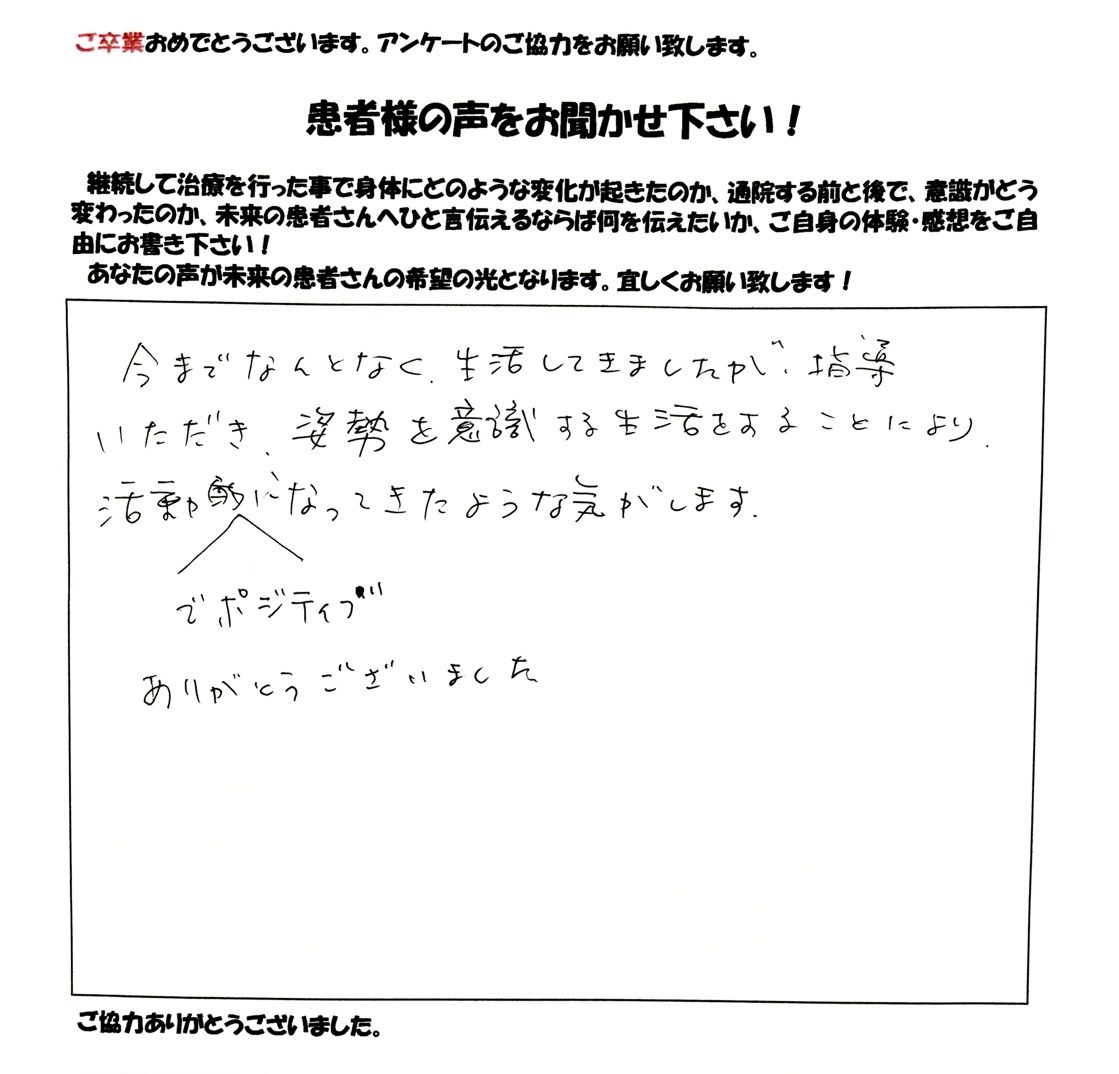 ご卒業おめでとうございます。アンケートのご協力をお願い致します。
患者様の声をお聞かせ下さい！
継続して治療を行った事で身体にどのような変化が起きたのか、通院する前と後で、意識がどう
変わったのか、未来の患者さんへひと言伝えるならば何を伝えたいか、ご自身の体験・感想をご自
由にお書き下さい！
あなたの声が未来の患者さんの希望の光となります。宜しくお願い致します！
今までなんとなく、生活してきましたが、指導
いただき、姿勢を意識する生活をすることにより、
活動的になってきたような気がします。
でポジティブ
ありがとうございました
ご協力ありがとうございました。